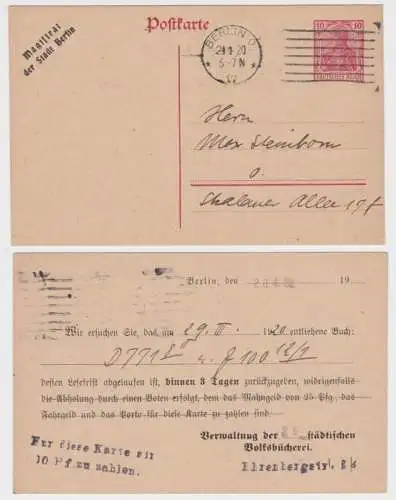 Magistrat
der Stadt Berlin
Postkarte
BERLIN O.
5-7N
17
10 10
DEUTSCHES REICH
Herrn
Max Steinborn
O.
Allee
Berlin, den 19
Wir ersuchen Sie, das am 29. III. 1920 entliehene Buch:
D771 u. J 100 12/1
dessen Lesefrist abgelaufen ist, binnen 3 Tagen zurückzugeben, widrigenfalls
die Abholung durch einen Boten erfolgt, dem das Mahngeld von 25 Pfg., das
Fahrgeld und das Porto für diese Karte zu zahlen sind.
Für diese Karte sir
10 Pf. zu zahlen.
Verwaltung der städtischen
Volksbücherei.
Ehrenbergstr.